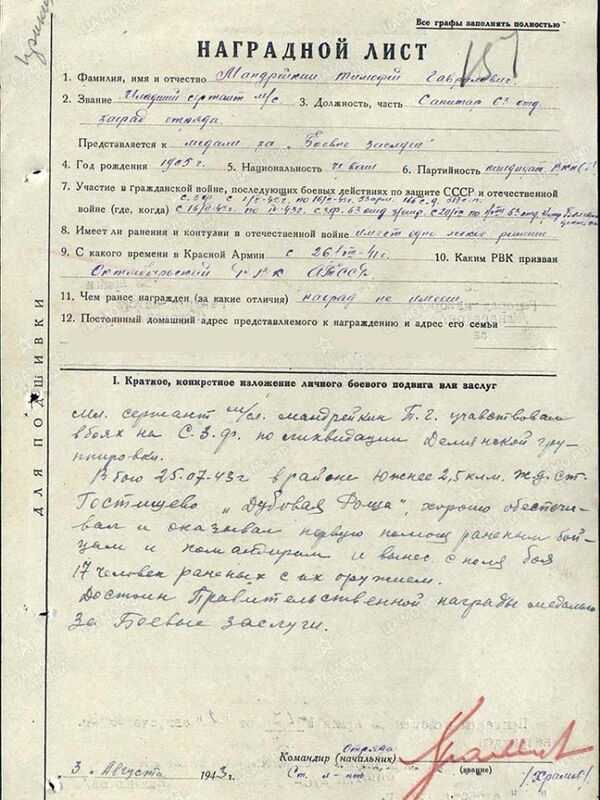 Все графы заполнять полностью
НАГРАДНОЙ ЛИСТ
1. Фамилия, имя и отчество Мандрейкин Тимофей Гаврилович
2. Звание Младший сержант м/с 3. Должность, часть Санитар 63 отд
заград отряда
Представляется к медали за „Боевые заслуги“
4. Год рождения 1905 г. 5. Национальность чуваш 6. Партийность кандидат ВКП(б)
7. Участие в гражданской войне, последующих боевых действиях по защите СССР и отечественной
войне (где, когда)
8. Имеет ли ранения и контузии в отечественной войне имеет одно легкое ранение
9. С какого времени в Красной Армии 10. Каким РВК призван
Октябрьский РВК
11. Чем ранее награжден (за какие отличия) наград не имеет
12. Постоянный домашний адрес представляемого к награждению и адрес его семьи
I. Краткое, конкретное изложение личного боевого подвига или заслуг
Мл. сержант м/сл. Мандрейкин Т. Г. учавствовал
в боях на С. З. ф. по ликвидации Демянской гру-
ппировки.
В бою 25.07.43г в районе южнее 2,5 клм. ж.д. ст.
Гостищево „Дубовая Роща“, хорошо обеспечи-
вал и оказывал первую помощ раненым бой-
цам и командирам и вынес с поля боя
17 человек раненых с их оружием.
Достоин Правительственной награды медалью
За Боевые заслуги.
Отряда
Командир (начальник)
(звание)
Ст. л-нт
/Храмов/
„3„ Августа 1943 г.
ДЛЯ ПОДШИВКИ